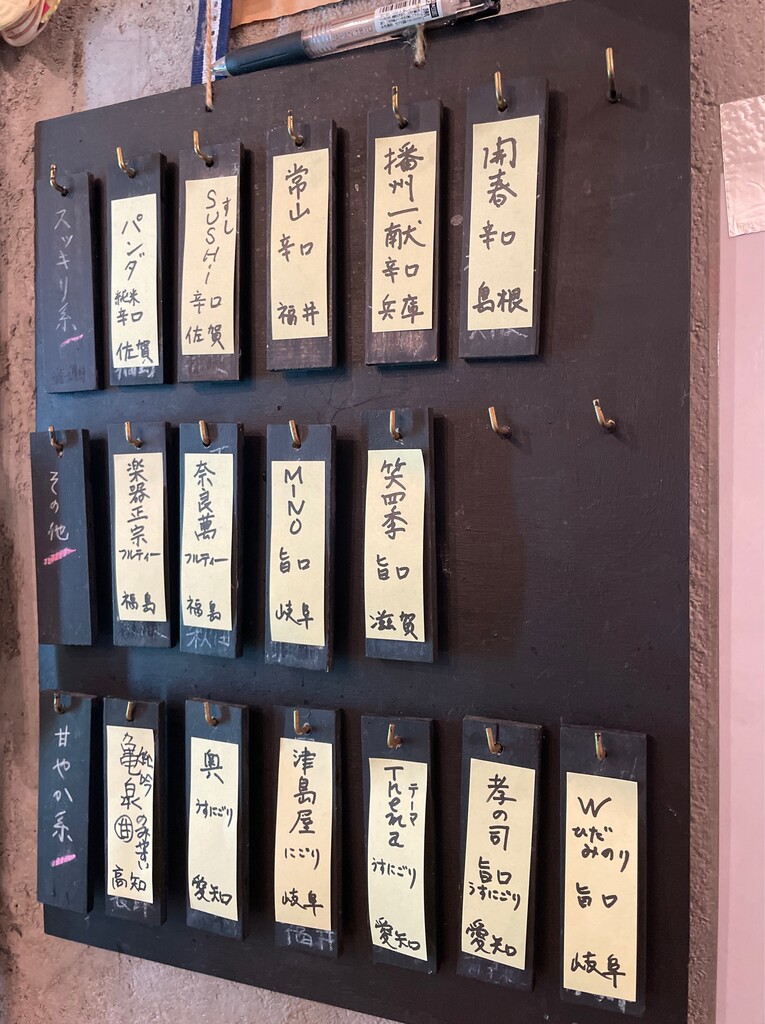 スッキリ系
パンダ
純米
辛口
佐賀
すし
SUSHi
辛口
佐賀
常山
辛口
福井
播州一献
辛口
兵庫
開春
辛口
島根
その他
楽器正宗
フルティー
福島
奈良萬
フルティー
福島
MINO
旨口
岐阜
笑四季
旨口
滋賀
甘やか系
亀泉
甘
のみやすい
高知
奥
うすにごり
愛知
津島屋
にごり
岐阜
テーマ
Thema
うすにごり
愛知
孝の司
旨口
うすにごり
愛知
W
ひだ
みのり
旨口
岐阜